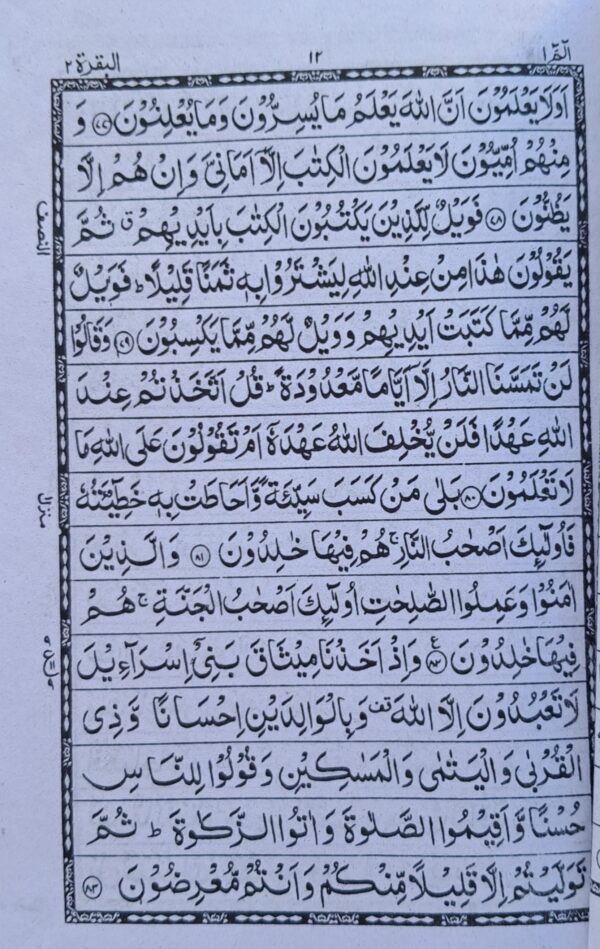 الٓمّٓ ١ ١٢ البقرة ٢
اَوَلَا يَعْلَمُوْنَ اَنَّ اللّٰهَ يَعْلَمُ مَا يُسِرُّوْنَ وَمَا يُعْلِنُوْنَ ﴿٧٧﴾ وَ
مِنْهُمْ اُمِّيُّوْنَ لَا يَعْلَمُوْنَ الْكِتٰبَ اِلَّاۤ اَمَانِىَّ وَاِنْ هُمْ اِلَّا
يَظُنُّوْنَ ﴿٧٨﴾ فَوَيْلٌ لِّلَّذِيْنَ يَكْتُبُوْنَ الْكِتٰبَ بِاَيْدِيْهِمْ ق ثُمَّ
يَقُوْلُوْنَ هٰذَا مِنْ عِنْدِ اللّٰهِ لِيَشْتَرُوْا بِهٖ ثَمَنًا قَلِيْلًا ط فَوَيْلٌ
لَّهُمْ مِّمَّا كَتَبَتْ اَيْدِيْهِمْ وَوَيْلٌ لَّهُمْ مِّمَّا يَكْسِبُوْنَ ﴿٧٩﴾ وَقَالُوْا
لَنْ تَمَسَّنَا النَّارُ اِلَّاۤ اَيَّامًا مَّعْدُوْدَةً ط قُلْ اَتَّخَذْتُمْ عِنْدَ
اللّٰهِ عَهْدًا فَلَنْ يُّخْلِفَ اللّٰهُ عَهْدَهٗۤ اَمْ تَقُوْلُوْنَ عَلَى اللّٰهِ مَا
لَا تَعْلَمُوْنَ ﴿٨٠﴾ بَلٰى مَنْ كَسَبَ سَيِّئَةً وَّاَحَاطَتْ بِهٖ خَطِيْٓئَتُهٗ
فَاُولٰٓئِكَ اَصْحٰبُ النَّارِ ج هُمْ فِيْهَا خٰلِدُوْنَ ﴿٨١﴾ وَالَّذِيْنَ
اٰمَنُوْا وَعَمِلُوا الصّٰلِحٰتِ اُولٰٓئِكَ اَصْحٰبُ الْجَنَّةِ ج هُمْ
فِيْهَا خٰلِدُوْنَ ﴿٨٢﴾ ع وَاِذْ اَخَذْنَا مِيْثَاقَ بَنِىْۤ اِسْرَآءِيْلَ
لَا تَعْبُدُوْنَ اِلَّا اللّٰهَ قف وَبِالْوَالِدَيْنِ اِحْسَانًا وَّذِى
الْقُرْبٰى وَالْيَتٰمٰى وَالْمَسٰكِيْنِ وَقُوْلُوْا لِلنَّاسِ
حُسْنًا وَّاَقِيْمُوا الصَّلٰوةَ وَاٰتُوا الزَّكٰوةَ ط ثُمَّ
تَوَلَّيْتُمْ اِلَّا قَلِيْلًا مِّنْكُمْ وَاَنْتُمْ مُّعْرِضُوْنَ ﴿٨٣﴾
النصف
منزل